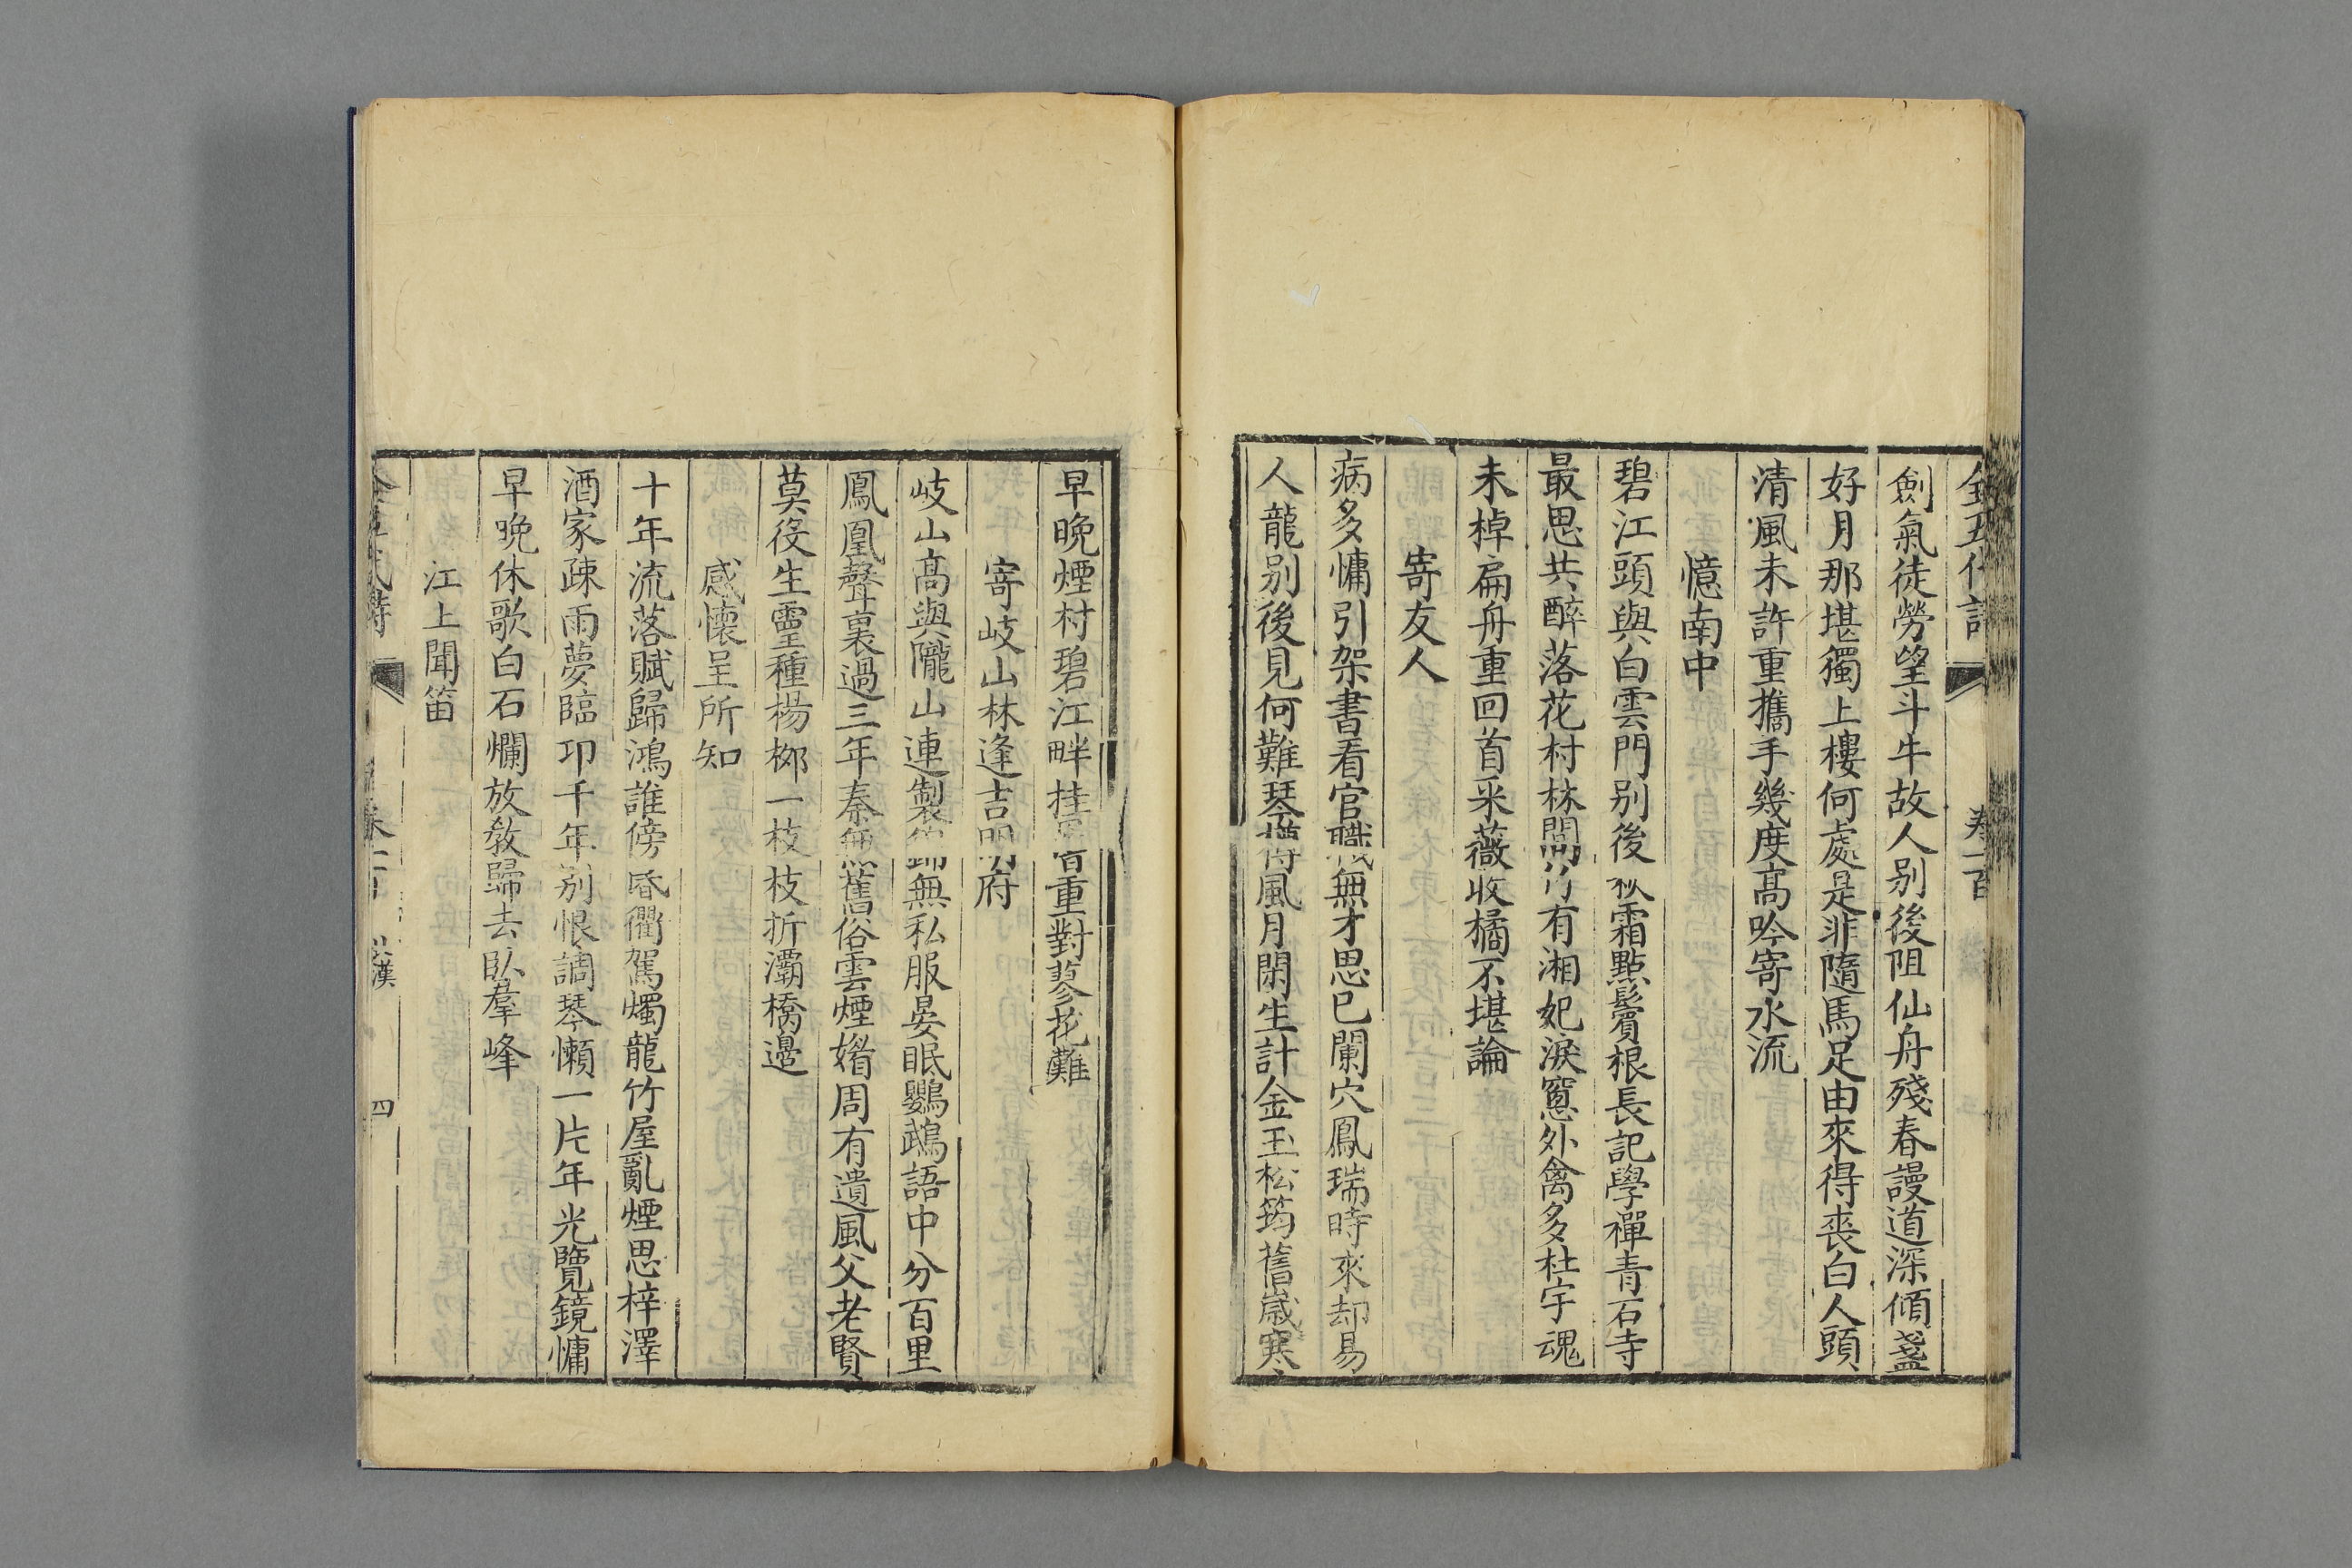 劍氣徒勞望斗牛故人别後阻仙舟殘春謾道深傾盞
好月那堪獨上樓何處是非隨馬足由來得喪白人頭
清風未許重攜手幾度高吟寄水流
憶南中
碧江頭與白雲門别後秋霜點鬢根長記學禪青石寺
最思共醉落花村林間竹有湘妃淚窻外禽多杜宇魂
未棹扁舟重回首采薇收橘不堪論
寄友人
病多慵引架書看官職無才思已闌穴鳳瑞時來却易
人龍别後見何難琴樽風月閑生計金玉松筠舊歲寒
早晚煙村碧江畔挂罾重對蓼花灘
寄岐山林逢吉明府
岐山高與隴山連製錦無私服晏眠鸚鵡語中分百里
鳳凰聲裏過三年秦無舊俗雲煙媚周有遺風父老賢
莫役生靈種楊栁一枝枝折灞橋邊
感懷呈所知
十年流落賦歸鴻誰傍昏衢駕燭龍竹屋亂煙思梓澤
酒家疎雨夢臨卭千年别恨調琴懶一片年光覽鏡慵
早晚休歌白石爛放教歸去臥羣峰
江上聞笛
四